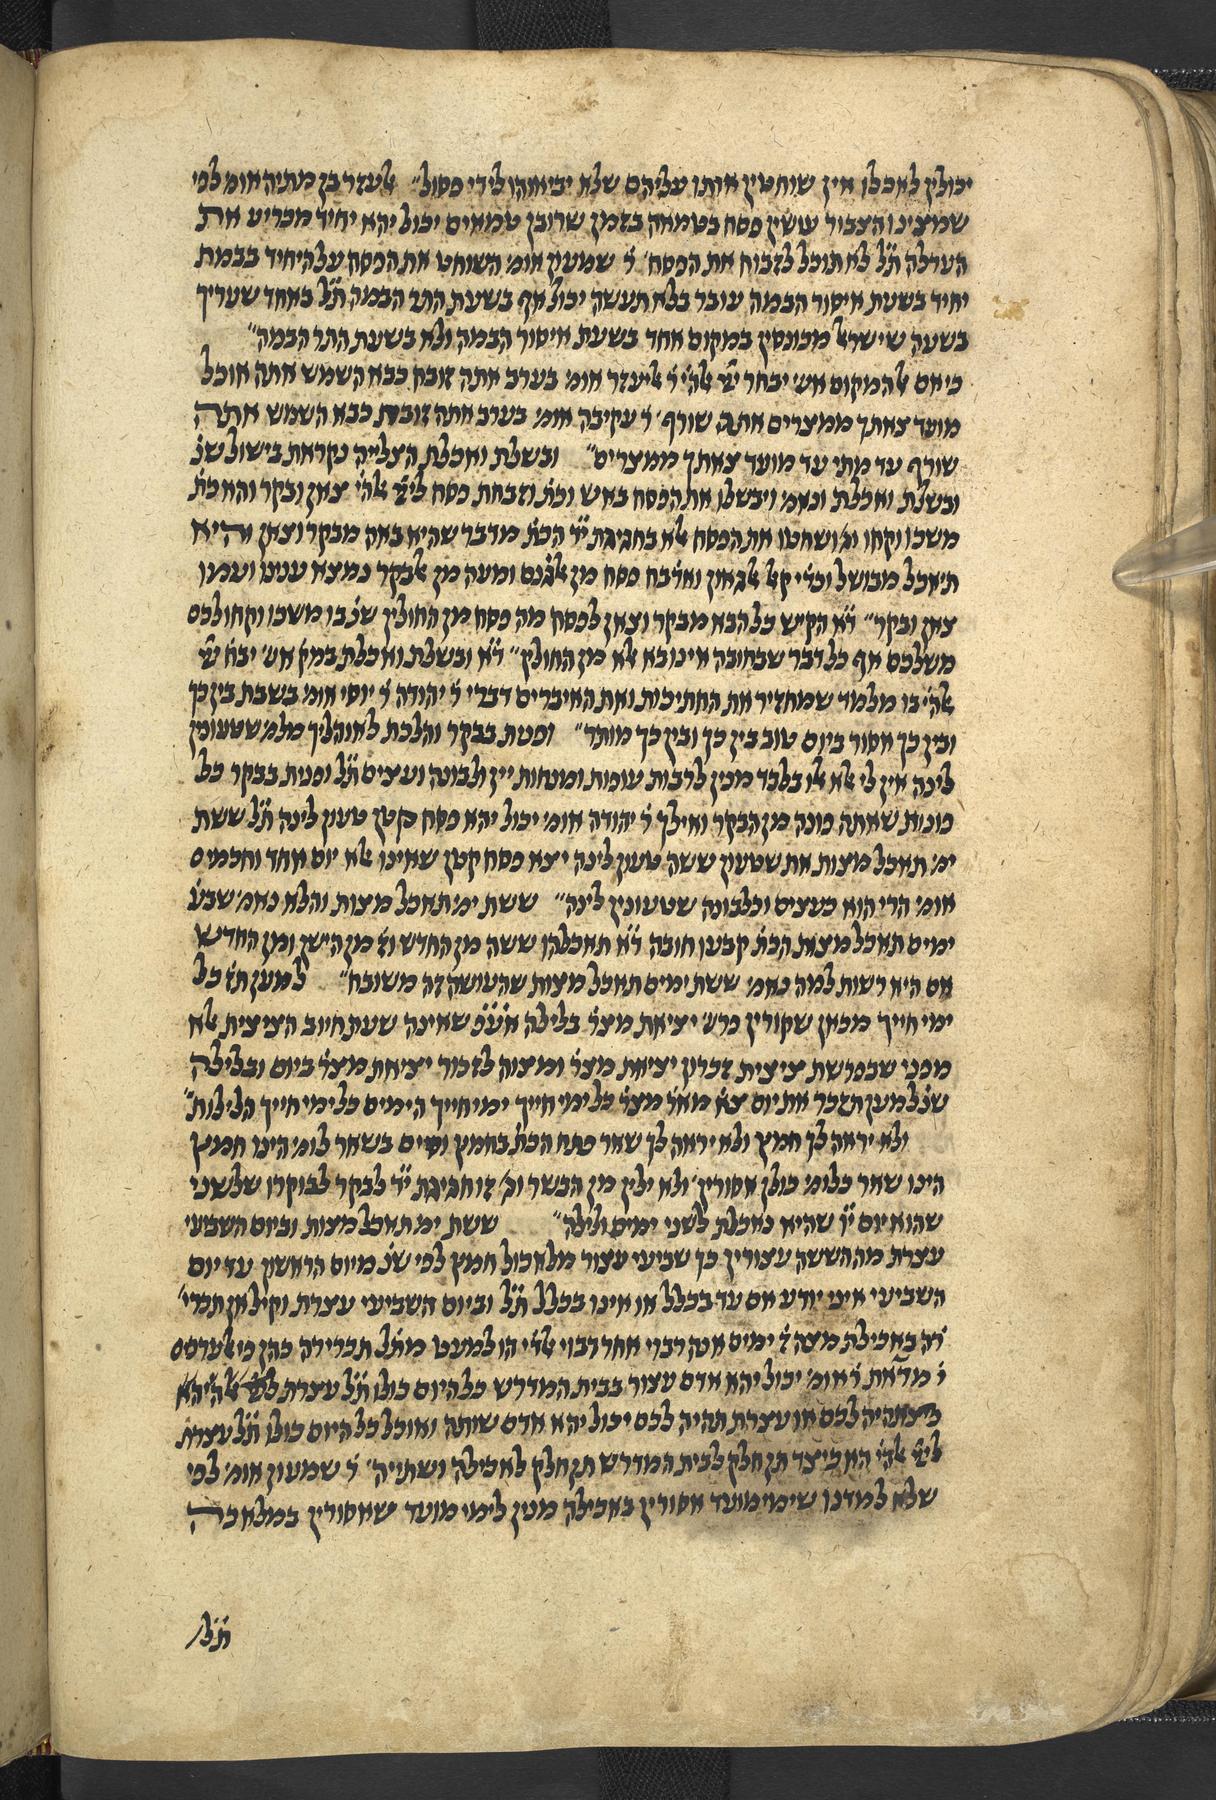 יכולין לאכלו אין שוחטין אותו עליהם שלא יביאוהו לידי פסול״ אלעזר בן מתיה אומ׳ לפי
שמצינו הצבור עושין פסח בטמאה בזמן שרובן טמאים יכול יהא יחיד מכריע את
הערלה ת״ל לא תוכל לזבוח את הפסח׳ ר׳ שמעון אומ׳ השוחט את הפסח על היחיד בבמת
יחיד בשעת איסור הבמה עובר בלא תעשה יכול אף בשעת התר הבמה ת״ל באחד שעריך
בשעה שישראל מכונסין במקום אחד בשעת איסור הבמה ולא בשעת התר הבמה״
כי אם אל המקום אש׳ יבחר יי׳ אלהי׳ ר׳ אליעזר אומ׳ בערב אתה זובח כבא השמש אתה אוכל
מועד צאתך ממצרים אתה שורף׳ ר׳ עקיבה אומ׳ בערב אתה זובח כבא השמש אתה
שורף עד מתי עד מועד צאתך ממצרים״ ובשלת ואכלת הצלייה נקראת בישול שנ׳
ובשלת ואכלת ונאמ׳ ויבשלו את הפסח באש וכת׳ וזבחת פסח ליי׳ אלהי׳ צאן ובקר והא כת׳
משכו וקחו וג׳ ושחטו את הפסח אלא בחגיגת י״ד הכת׳ מדבר שהיא באה מבקר וצאן והיא
תיאכל מבושל
צאן ובקר״ ד״א הקיש כל הבא מבקר וצאן לפסח מה פסח מן החולין שנ׳ בו משכו וקחו לכם
משלכם אף כל דבר שבחובה אינו בא אלא מן החולין״ ד״א ובשלת ואכלת במק׳ אש׳ יבח׳ יי׳
אלהי׳ בו מלמד שמחזיר את החתיכות ואת האיברים דברי ר׳ יהודה ר׳ יוסי אומ׳ בשבת בין כך
ובין כך אסור ביום טוב בין כך ובין כך מותר״ ופנית בבקר והלכת לאוהליך מלמ׳ שטעונין
לינה אין לי אלא אלו בלבד מנין לרבות עופות ומנחות יין ולבונה ועצים ת״ל ופנית בבקר כל
פונות שאתה פונה מן הבקר ואילך ר׳ יהודה אומ׳ יכול יהא פסח קטן טעון לינה ת״ל ששת
ימ׳ תאכל מצות את שטעון ששה טעון לינה יצא פסח קטן שאינו אלא יום אחד וחכמים
אומ׳ הרי הוא כעצים וכלבונה שטעונין לינה״ ששת ימ׳ תאכל מצות והלא נאמ׳ שבע׳
ימים תאכל מצות הכת׳ קבען חובה ד״א תאכלהו ששה מן החדש וז׳ מן הישן ומן החדש
אם היא רשות למה נאמ׳ ששת ימים תאכל מצות שהעושה זה משובח״ למען תז׳ כל
ימי חייך מכאן שקורין פרש׳ יציאת מצר׳ בלילה אע״פ שאינה שעת חיוב הציצית אלא
מפני שבפרשת ציצית זכרון יציאת מצר׳ ומצוה לזכור יציאת מצר׳ ביום ובלילה
שנ׳ למען תזכר את יום צא׳ מאר׳ מצר׳ כל ימי חייך ימי חייך הימים כל ימי חייך הלילות״
ולא יראה לך חמץ ולא יראה לך שאר פתח הכת׳ בחמץ וסיים בשאר לומ׳ הינו חמץ
הינו שאר כלומ׳ כולן אסורין׳ ולא ילין מן הבשר וג׳ זו חגיגת י״ד לבקר לבוקרו שלשני
שהוא יום י״ו שהיא נאכלת לשני ימים ולילה״ ששת ימ׳ תאכל מצות וביום השביעי
עצרת מה הששה עצורין כך שביעי עצור מלאכול חמץ לפי שנ׳ מיום הראשון עד יום
השביעי איני יודע אם עד בכלל או אינו בכלל ת״ל וביום השביעי עצרת
באכילת מצה ז׳ ימים
יכול יהא אדם עצור בבית המדרש כל היום כולו ת״ל עצרת
תהיה לכם או עצרת תהיה לכם יכול יהא אדם שותה ואוכל כל היום כולו ת״ל עצרת
ליי׳ אלה׳ הא כיצד תן חלק לבית המדרש תן חלק לאכילה ושתייה׳ ר׳ שמעון אומ׳ לפי
שלא למדנו שימי מועד אסורין באכילה מנין לימי מועד שאסורין במלאכה
ת״ל